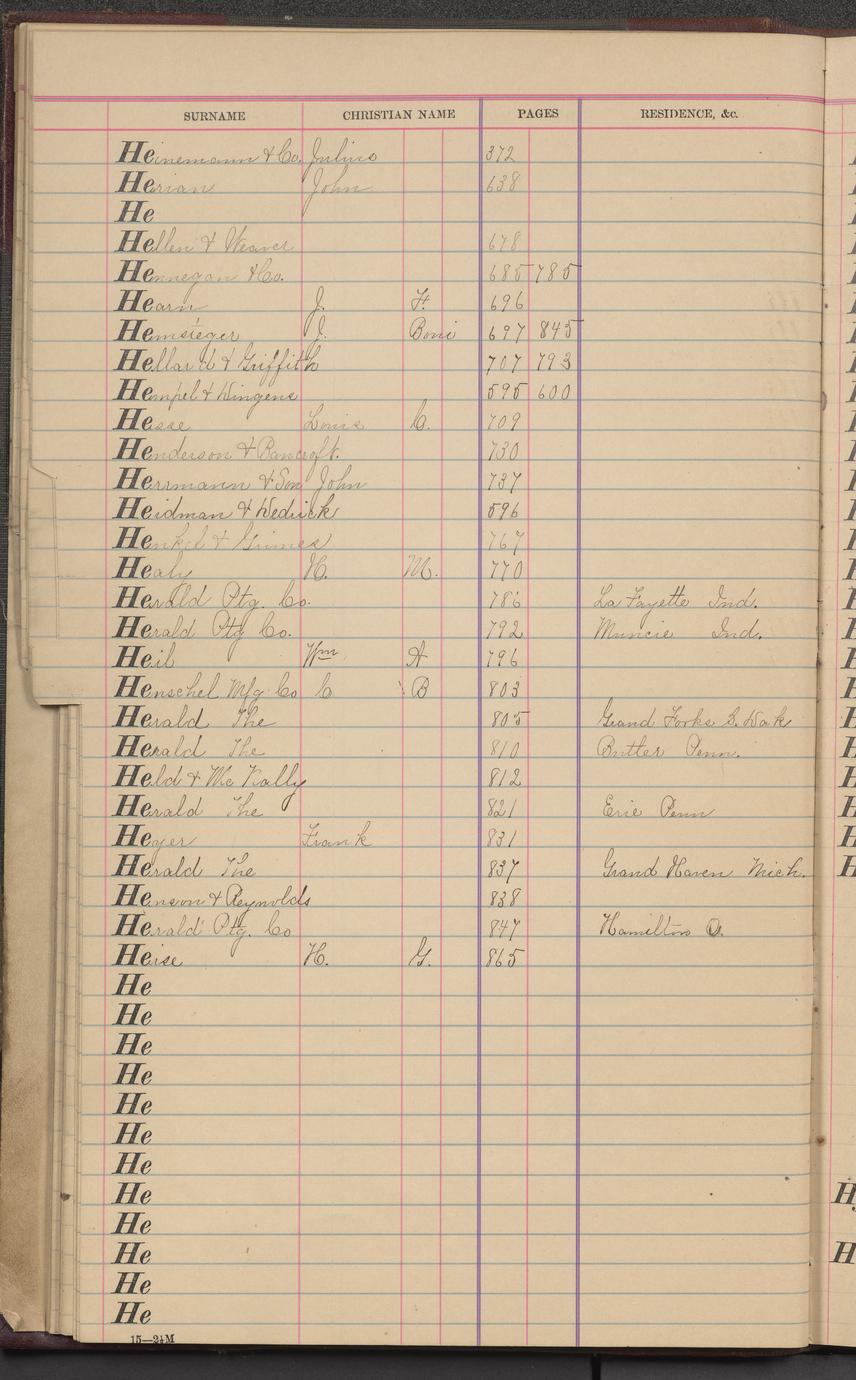 SURNAME CHRISTIAN NAME PAGES RESIDENCE, &c.
Heinemann & Co. Julius 372
Herian John 638
He
Hellen & Weaver 678
Hennegan & Co. 685 785
Hearn J. H. 696
Hemsieger J. Boni 697 845
Hellar & Griffith 707 793
Hempel & Wingens 595 600
Hesse Louis C. 709
Henderson & Bancroft. 730
Herrmann & Son John 737
Heidman & Wedrick 596
Henkel & Grimes 767
Healy H. M. 770
Herald Ptg. Co. 786 La Fayette Ind.
Herald Ptg Co. 792 Muncie Ind.
Heil Wm A 796
Henschel Mfg Co C B 803
Herald The 805 Grand Forks Dak
Herald The 810 Butler Penn.
Held & Mc Nally 812
Herald The 821 Erie Penn
Heyer Frank 831
Herald The 837 Grand Haven Mich.
Henson & Reynolds 838
Herald Ptg. Co 847 Hamilton O.
Heise H. G. 865
He
He
He
He
He
He
He
He
He
He
He
He
15—24M